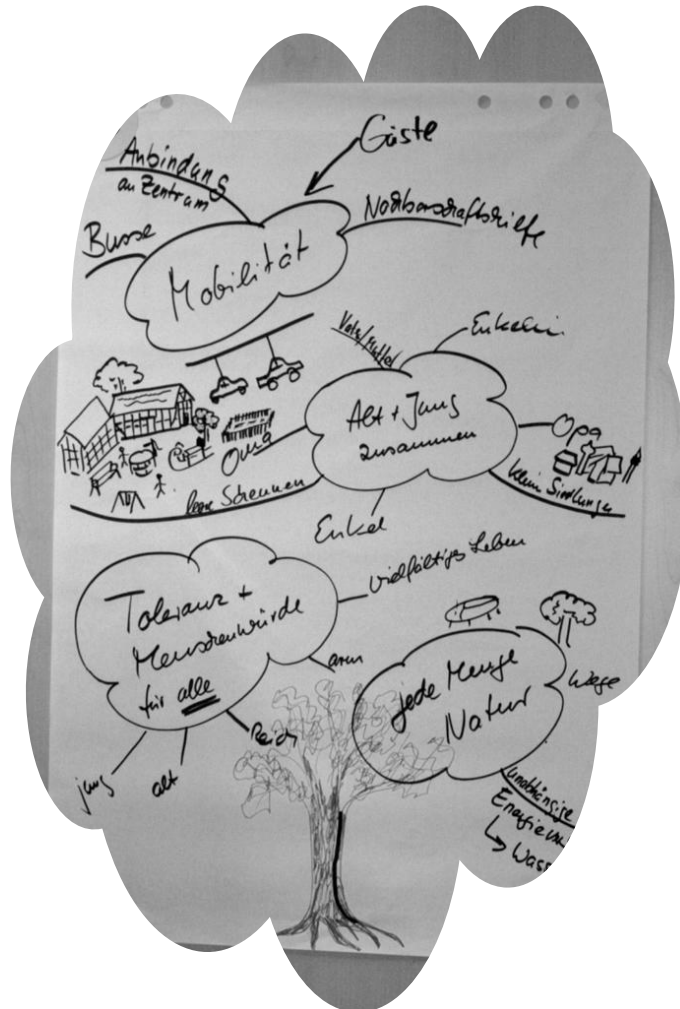 Gäste
Anbindung
an Zentrum
Nachbarschaftshilfe
Busse
Mobilität
Vater/Mutter
Enkelin
Alt + Jung
zusammen
Opa
Oma
leere Scheunen
kleine Siedlungen
Enkel
vielfältiges Leben
Toleranz +
Menschenwürde
für alle
arm
Reich
jung
alt
jede Menge
Natur
Wege
unabhängige